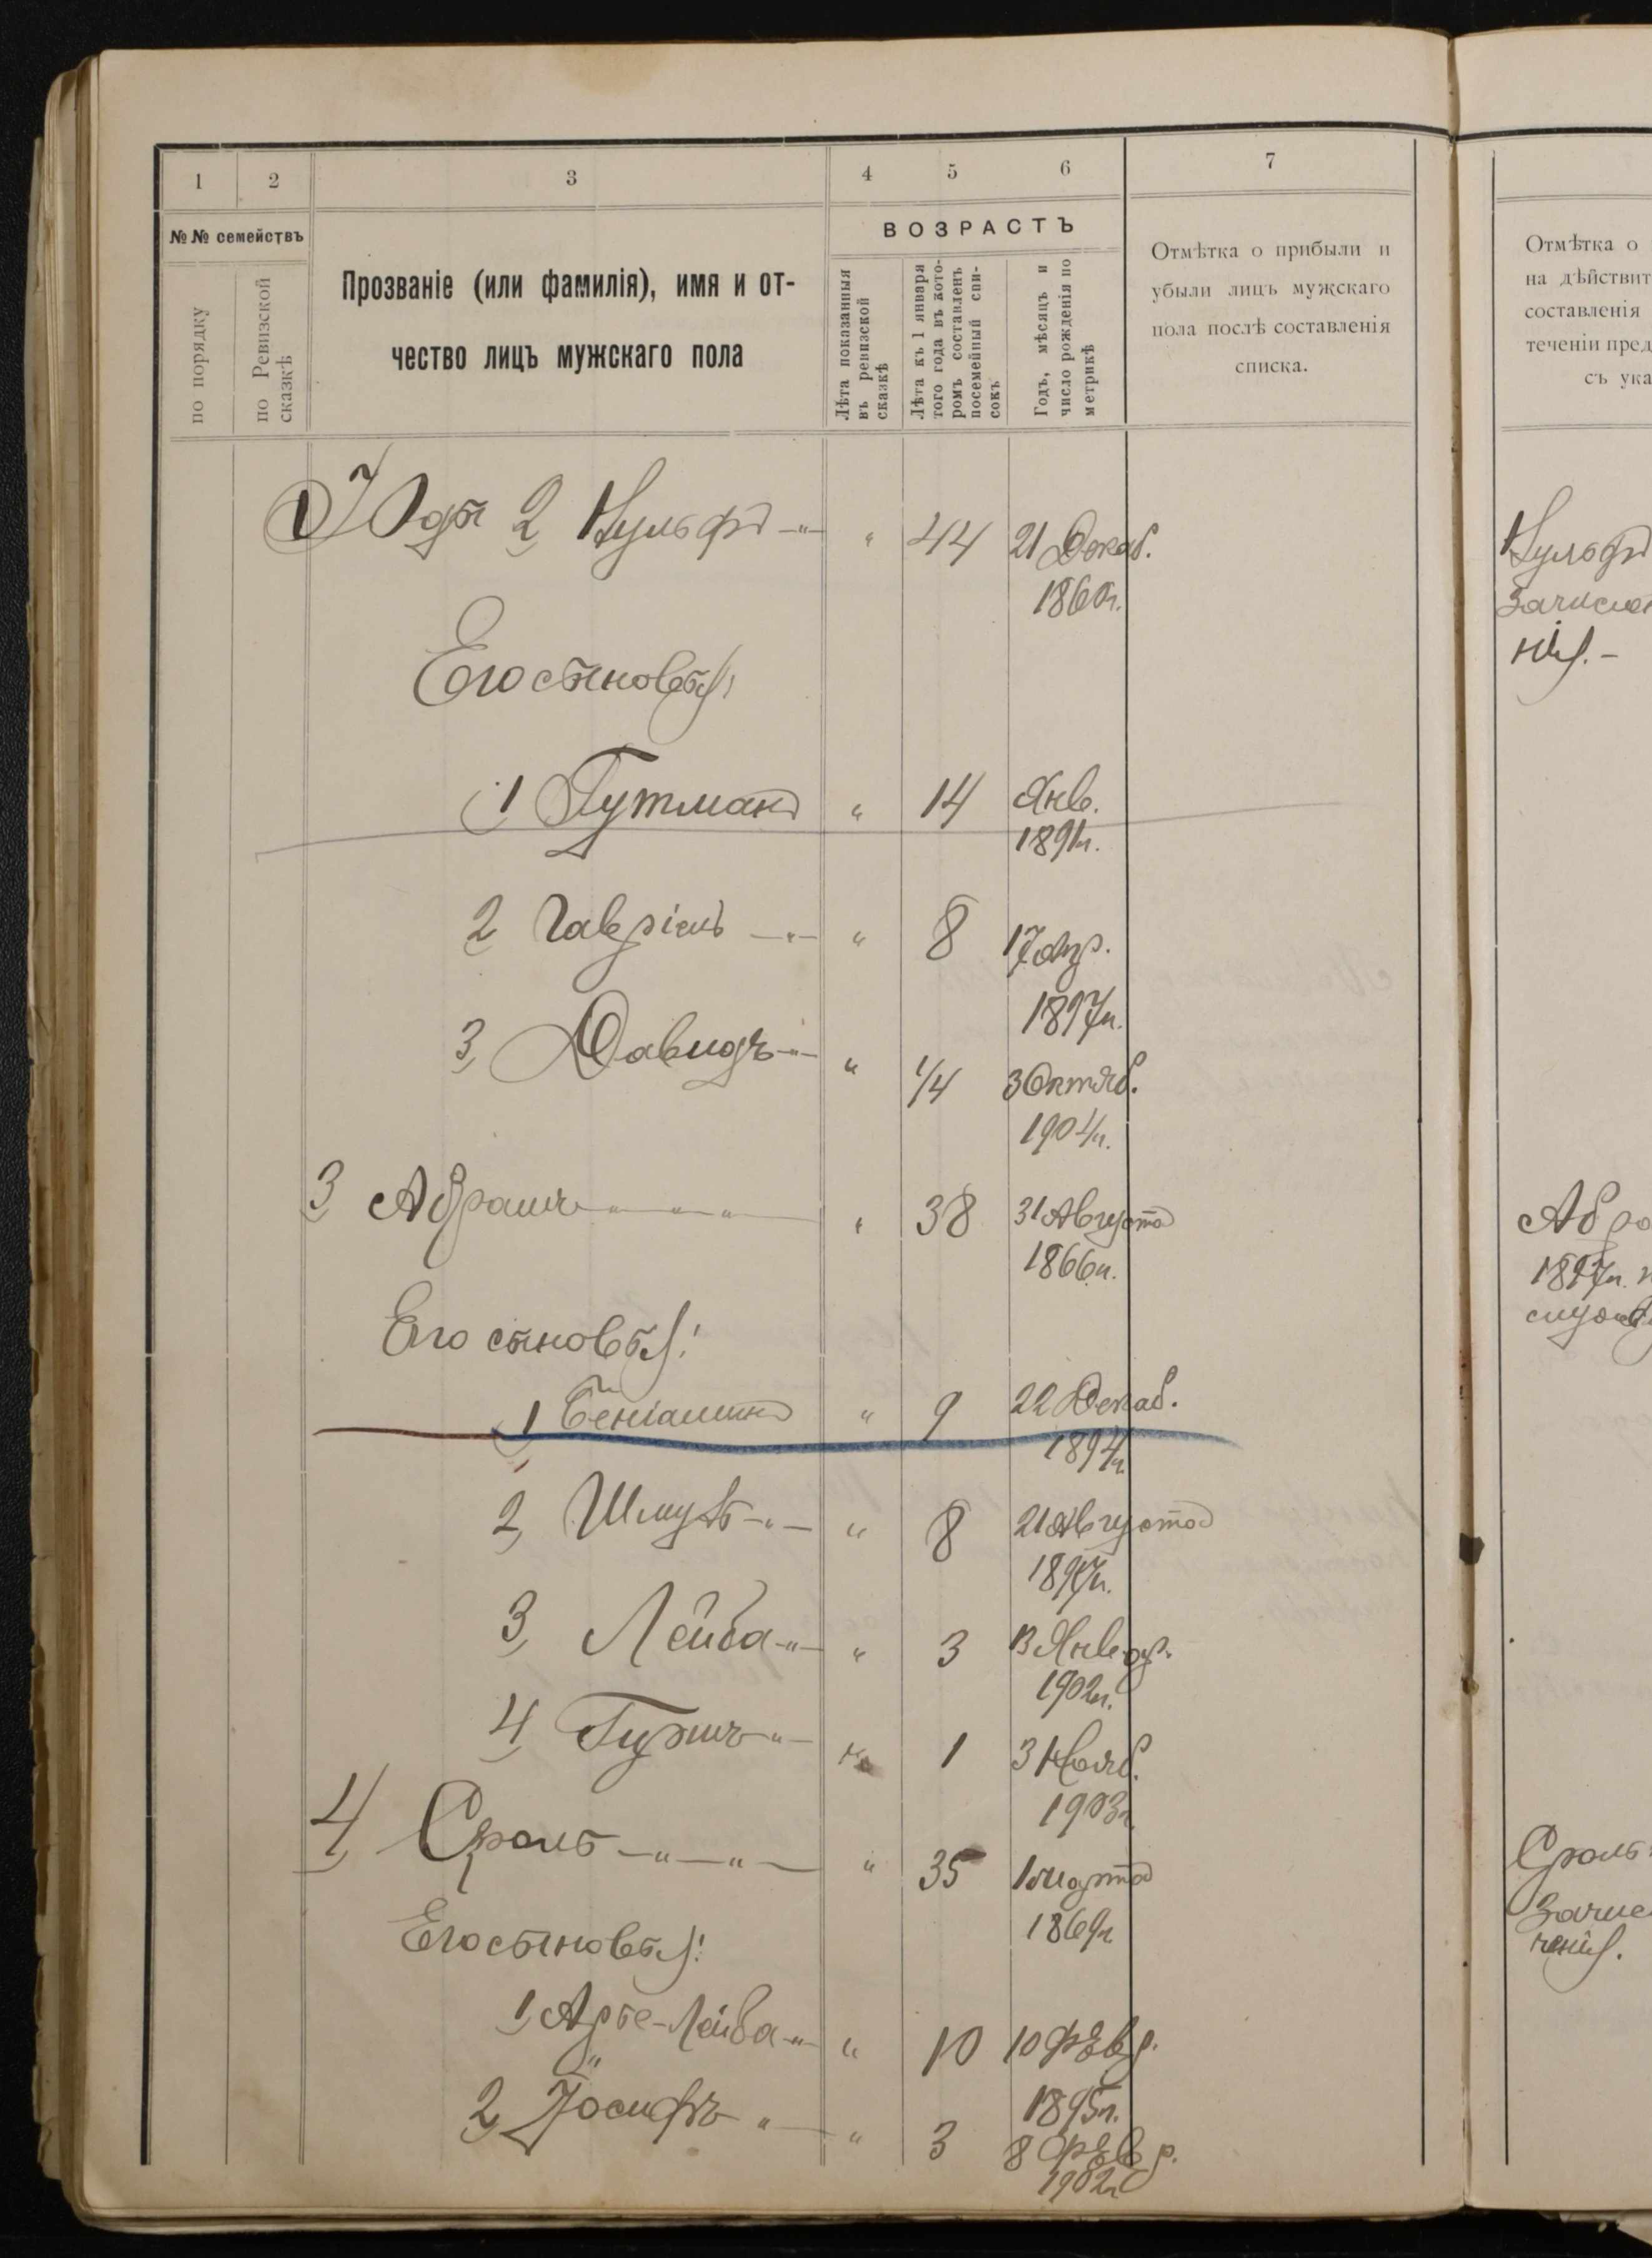 1 2 3 4 5 6 7
№№ семействъ
по порядку
по Ревизской сказкѣ
Прозваніе (или фамилія), имя и от-
чество лицъ мужскаго пола
ВОЗРАСТЪ
Лѣта показанныя
въ ревизской
сказкѣ
Лѣта къ 1 января
того года въ кото-
ромъ составленъ
посемейный спи-
сокъ
Годъ, мѣсяцъ и
число рожденія по
метрикѣ
Отмѣтка о прибыли и
убыли лицъ мужскаго
пола послѣ составленія
списка.
2 Нульфъ -"- " 44 21 Декаб.
1860г.
Его сыновья:
1 Гутманъ " 14 Янв.
1891г.
2 Гавріель -"- " 8 17 Апр.
1897г.
3, Давидъ -"- " 1/4 3 Октяб.
1904г.
3 Абрамъ -"-"-"- " 38 31 Августа
1866г.
Его сыновья:
1 Беніаминъ " 9 22 Декаб.
1894г.
2, Шмуль -"- " 8 21 Августа
1897г.
3, Лейба -"- " 3 13 Январ.
1902г.
4, Гиршъ -"- " 1 3 Нояб.
1903г.
4, Сроль -"-"- " 35 1 Марта
1869г.
Его сыновья:
1, Арье-Лейба -"- " 10 10 Февр.
1895г.
2, Іосифъ -"- " 3 8 Февр.
1902г.
Отмѣтка о
на дѣйствит
составленія
теченіи пред
съ ука
Нульфъ
Зачислен
нія.-
Абра
1897г.
служб
Сроль
Зачис
ченія.